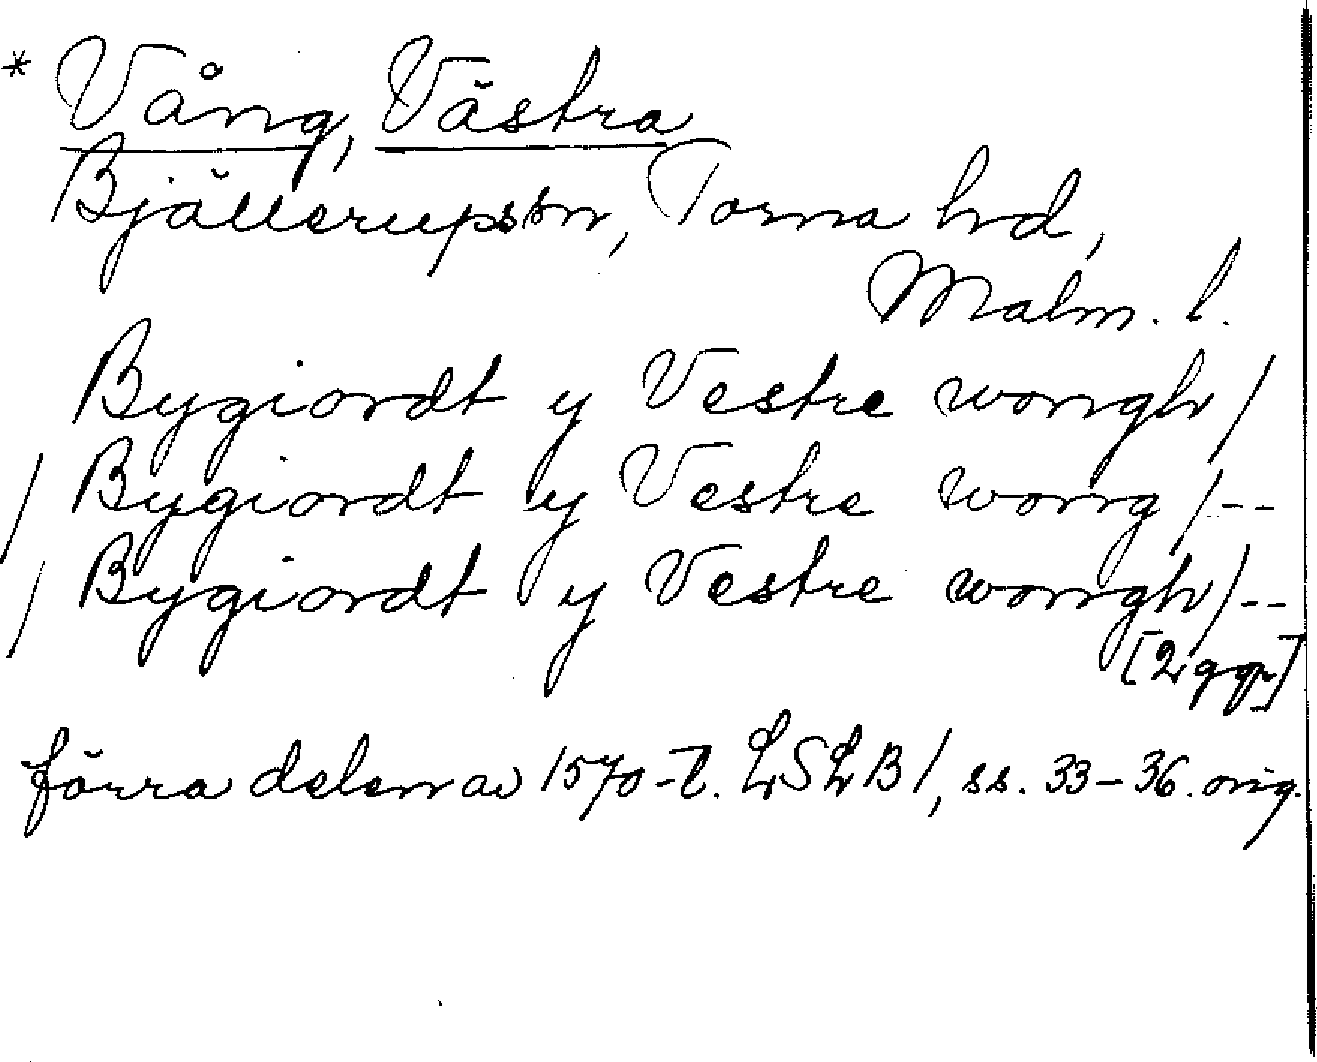 * Vång, Västra
Bjällerups sn, Torna hd,
Malm. l.
Bygiordt y Vestre wongh /
/ Bygiordt y Vestre wong /--
/ Bygiordt y Vestre wongh /--
[2 ggr]
förra delen av 1570-t. LSLB 1, ss. 33-36. orig.